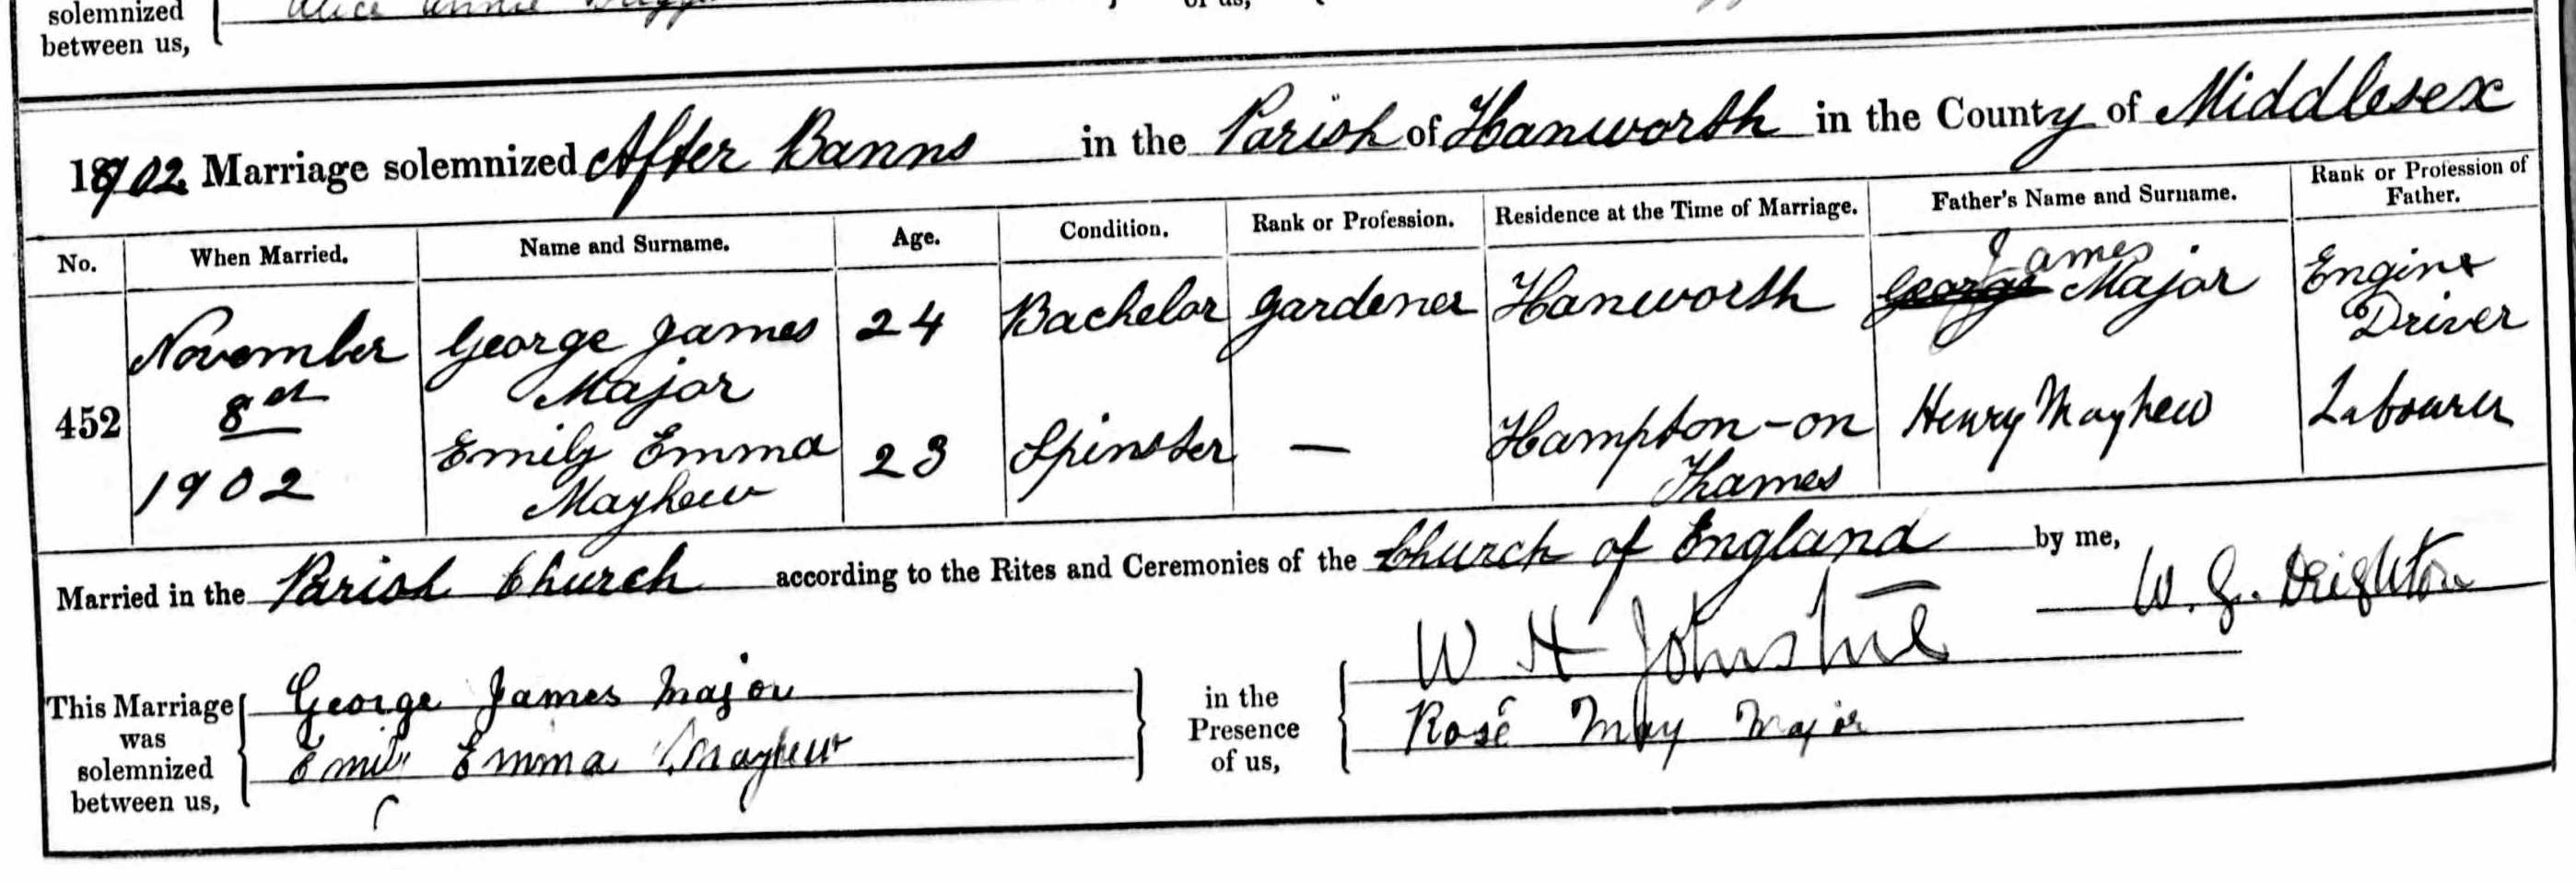 solemnized Alice Annie
between us,
1902 Marriage solemnized After Banns in the Parish of Hanworth in the County of Middlesex
No. When Married. Name and Surname. Age. Condition. Rank or Profession. Residence at the Time of Marriage. Father's Name and Surname. Rank or Profession of Father.
452 November 8th 1902 George James Major 24 Bachelor Gardener Hanworth James George Major Engine Driver
Emily Emma Mayhew 23 Spinster — Hampton-on Thames Henry Mayhew Labourer
Married in the Parish Church according to the Rites and Ceremonies of the Church of England by me,
W. G. Deighton
This Marriage was solemnized between us, George James Major
Emily Emma Mayhew
in the Presence of us, W H Johnstone
Rose May Major